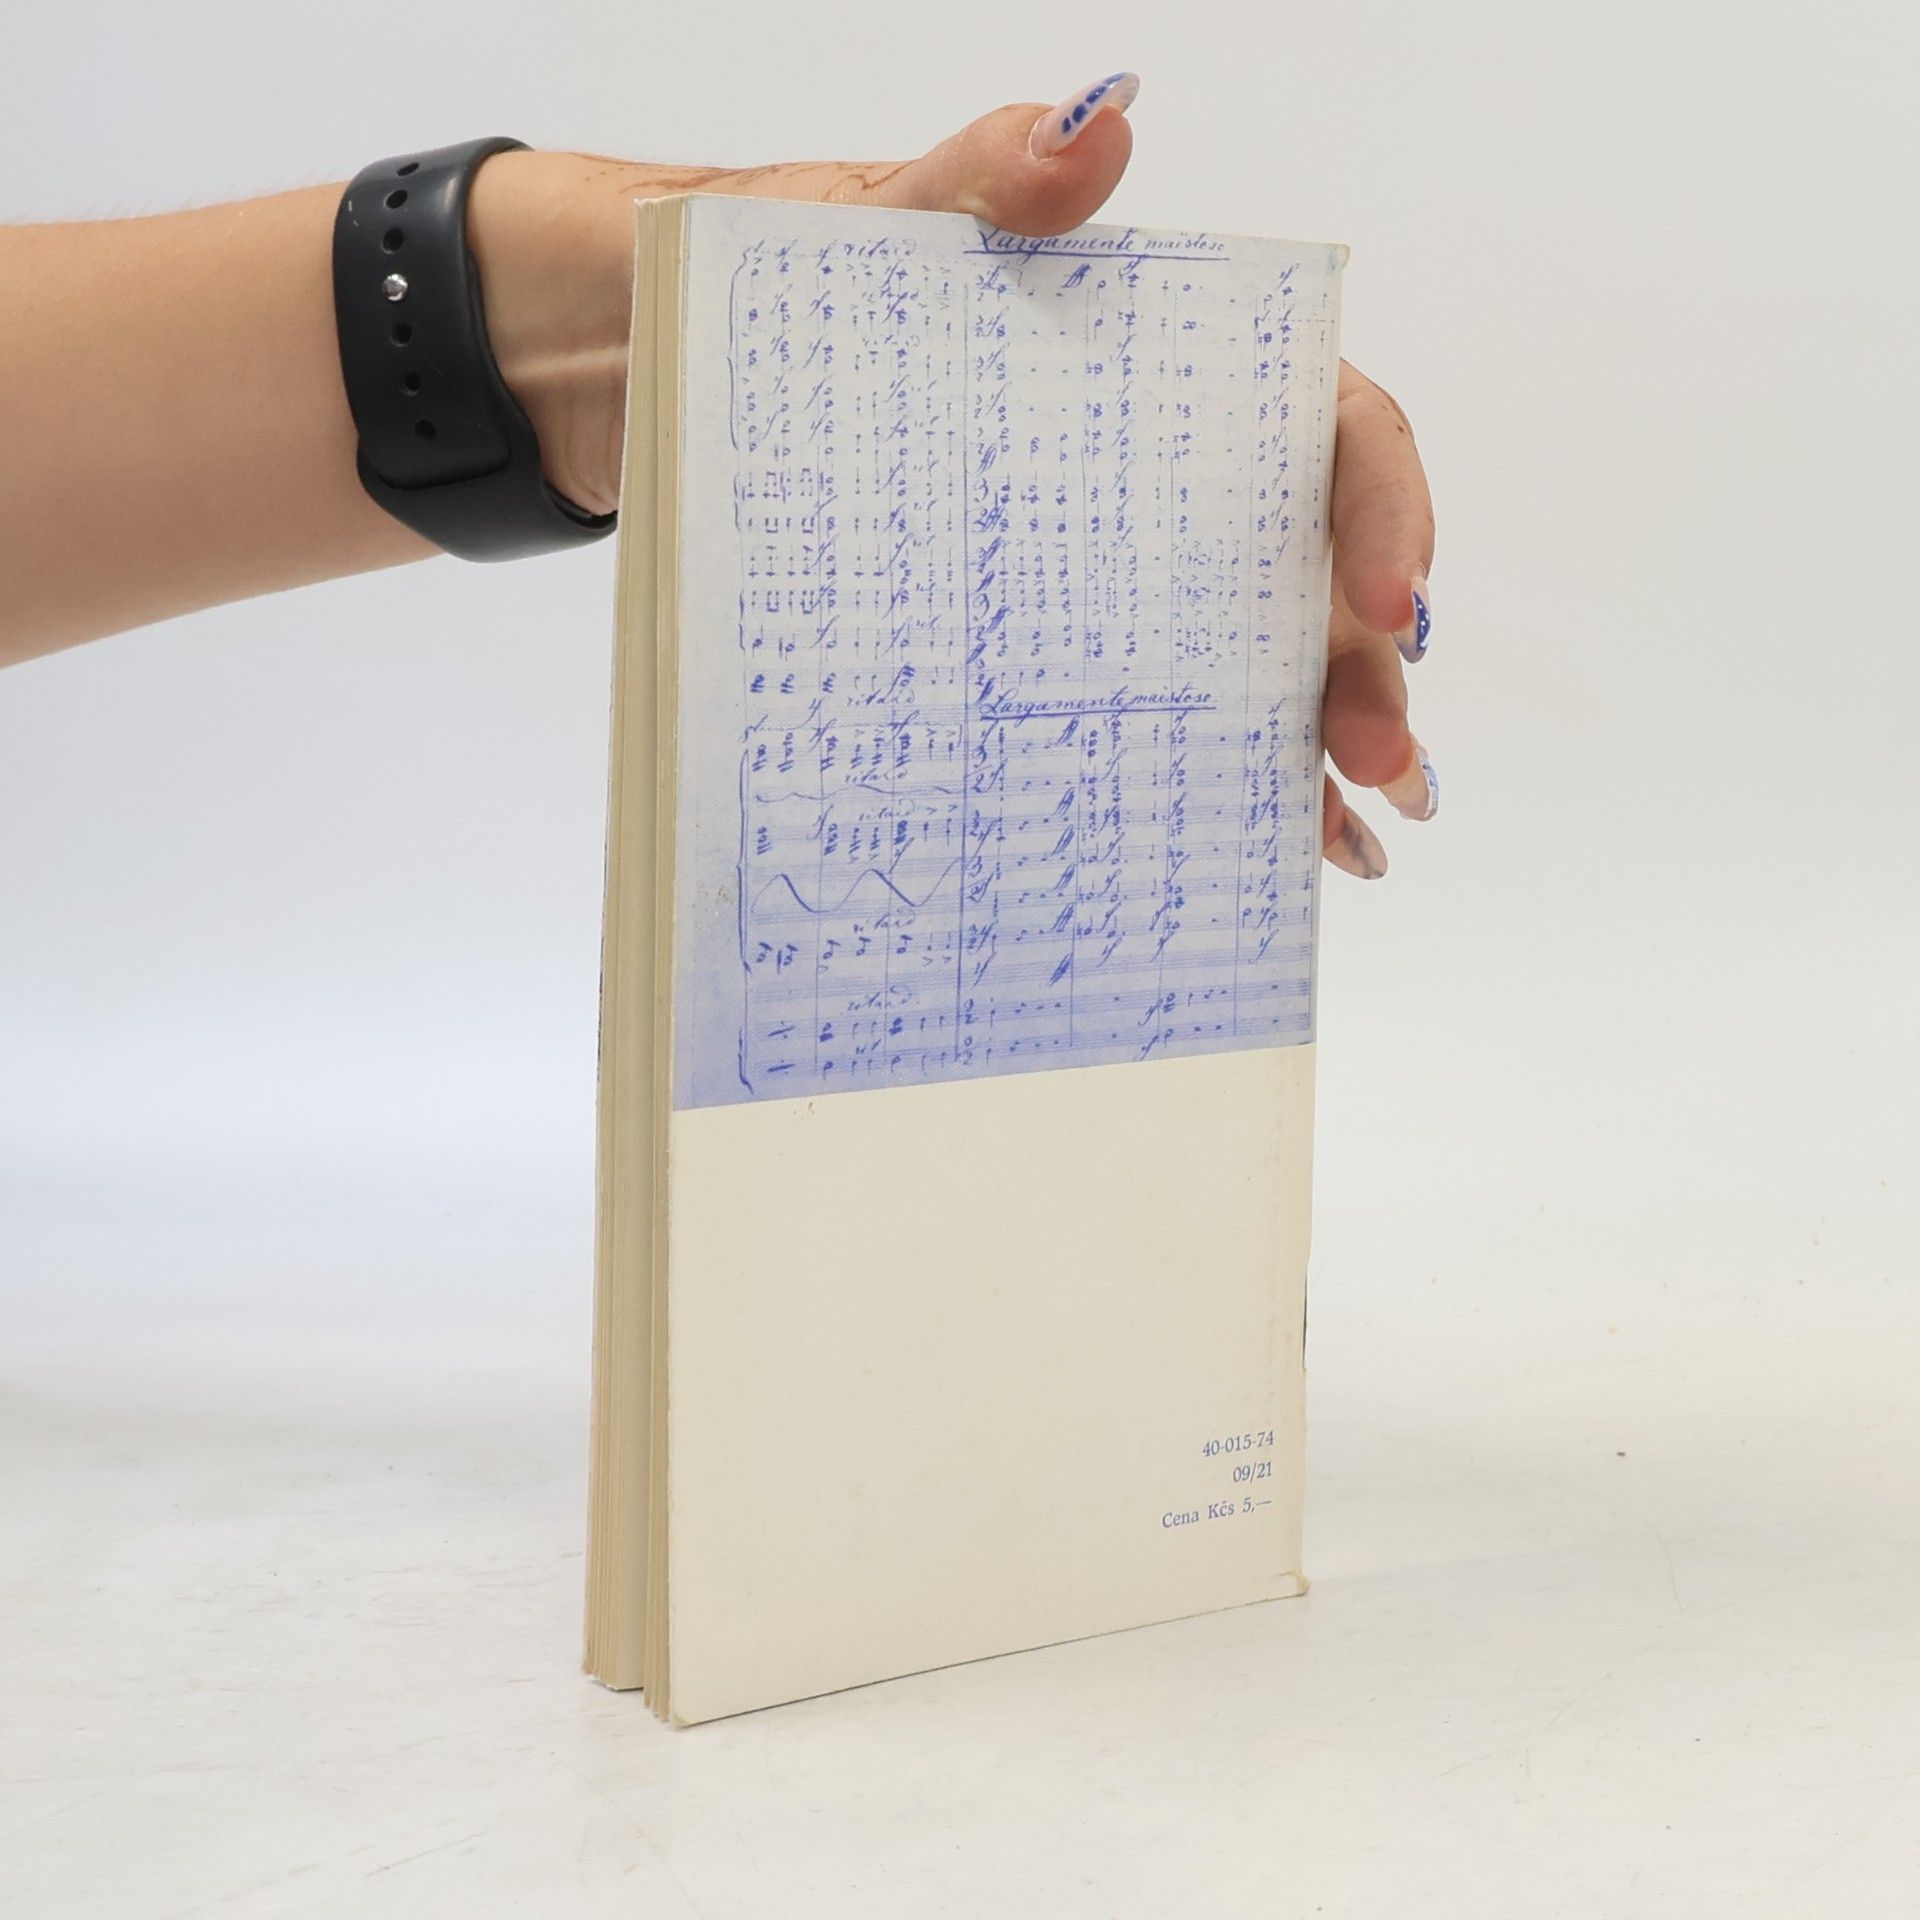 ritard
Largamente maestoso
ritard
Largamente maestoso
ritard
ritard
ritard
ritard
40-015-74
09/21
Cena Kčs 5,—